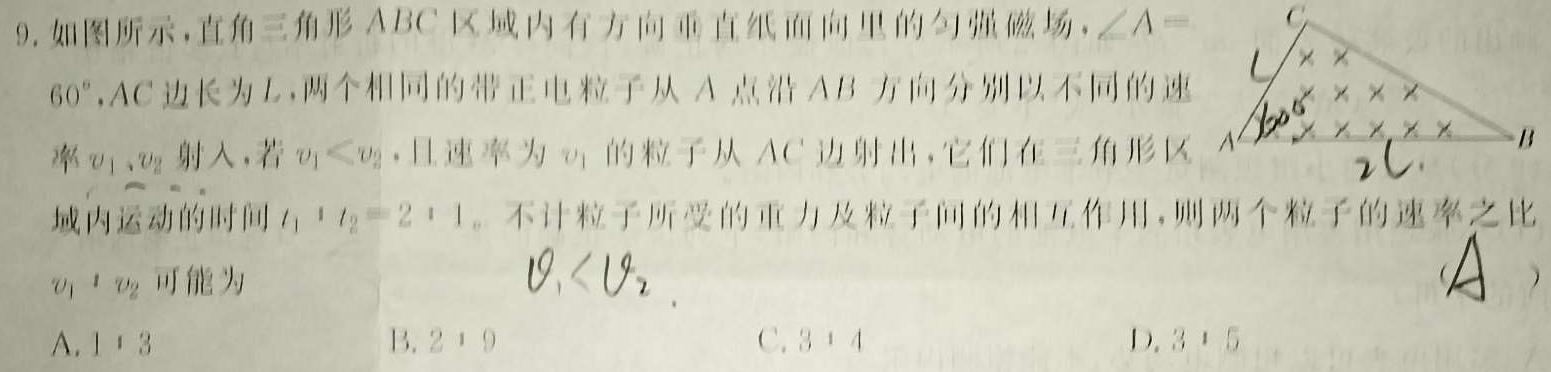 9. 如图所示,直角三角形 ABC 区域内有方向垂直纸面向里的匀强磁场,∠A=
60°,AC 边长为 L,两个相同的带正电粒子从 A 点沿 AB 方向分别以不同的速
率 v₁、v₂ 射入,若 v₁<v₂,且速率为 v₁ 的粒子从 AC 边射出,它们在三角形区
域内运动的时间 t₁:t₂=2:1。不计粒子所受的重力及粒子间的相互作用,则两个粒子的速率之比
v₁:v₂ 可能为
(A)
v₁<v₂.
A. 1:3 B. 2:9 C. 3:4 D. 3:5
C
L
× ×
× × × ×
A 60° × × × × × B
2L.